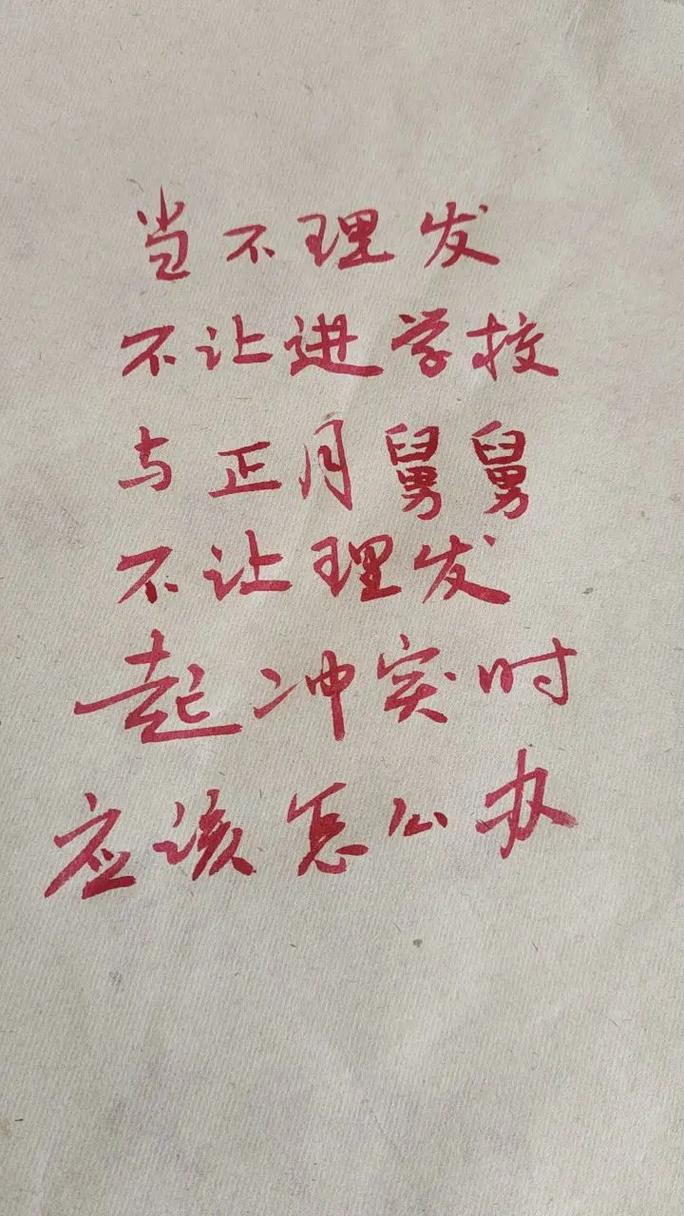 当不理发
不让进学校
与正月舅舅
不让理发
起冲突时
应该怎么办